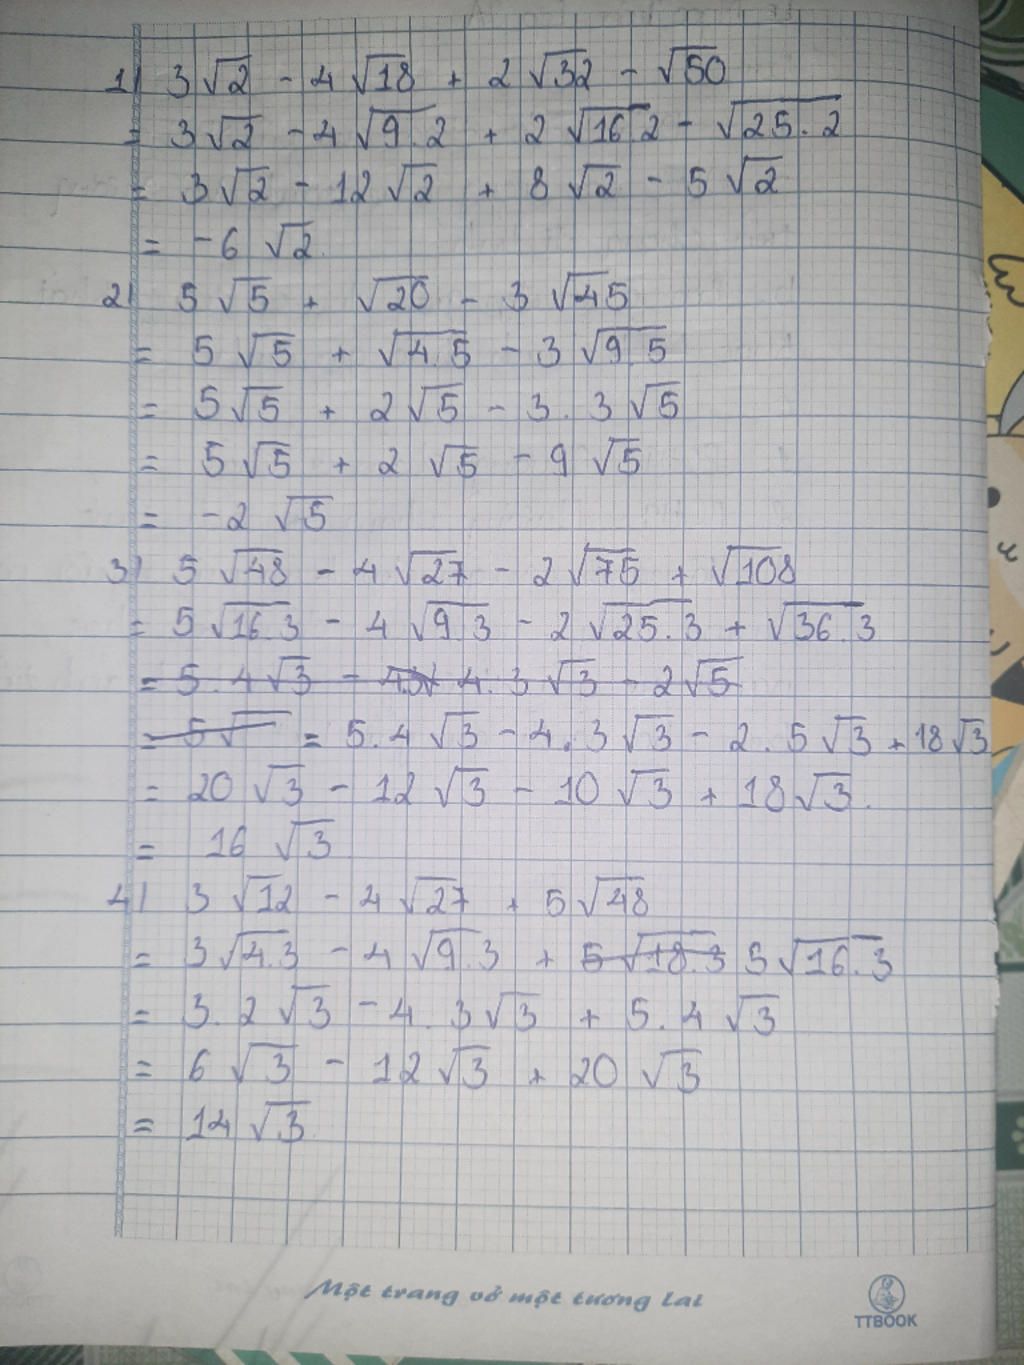 1) 3√2 - 4√18 + 2√32 - √50
= 3√2 - 4√9.2 + 2√16.2 - √25.2
= 3√2 - 12√2 + 8√2 - 5√2
= -6√2.
2) 5√5 + √20 - 3√45
= 5√5 + √4.5 - 3√9.5
= 5√5 + 2√5 - 3.3√5
= 5√5 + 2√5 - 9√5
= -2√5
3) 5√48 - 4√27 - 2√75 + √108
= 5√16.3 - 4√9.3 - 2√25.3 + √36.3
= 5.4√3 - 4.3√3 - 2√5
= 5√ = 5.4√3 - 4.3√3 - 2.5√3 + 18√3
= 20√3 - 12√3 - 10√3 + 18√3.
= 16√3
4) 3√12 - 4√27 + 5√48
= 3√4.3 - 4√9.3 + 5√18.3 5√16.3
= 3.2√3 - 4.3√3 + 5.4√3
= 6√3 - 12√3 + 20√3
= 14√3
Một trang vở một tương lai
TTBOOK